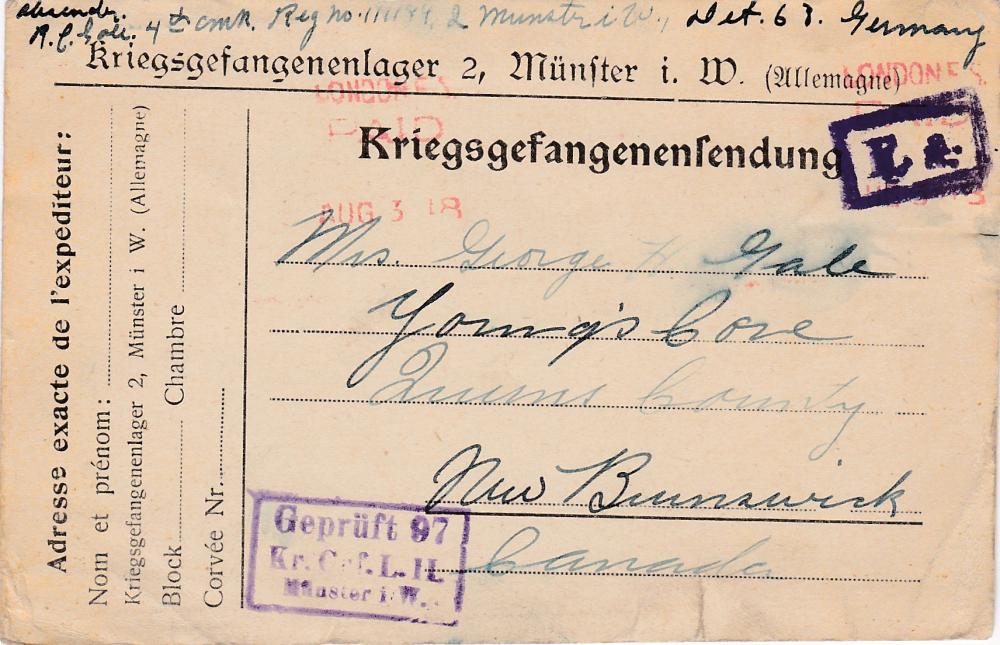 Absender.
4th CMR. Reg no. 111184, 2 Munster i W., Det. 63. Germany
Kriegsgefangenenlager 2, Münſter i. W. (Allemagne)
LONDON F.S.
PAID
AUG 3 18
LONDON F.S.
PAID
Kriegsgefangenenſendung
F. a.
Mrs. George H Gale
Young's Cove
Queens County
New Brunswick
Canada
Adresse exacte de l'expéditeur:
Nom et prénom:
Kriegsgefangenenlager 2, Münster i W. (Allemagne)
Block Chambre
Corvée Nr.
Geprüft 97
Kr. Gef. L. II.
Münster i. W.